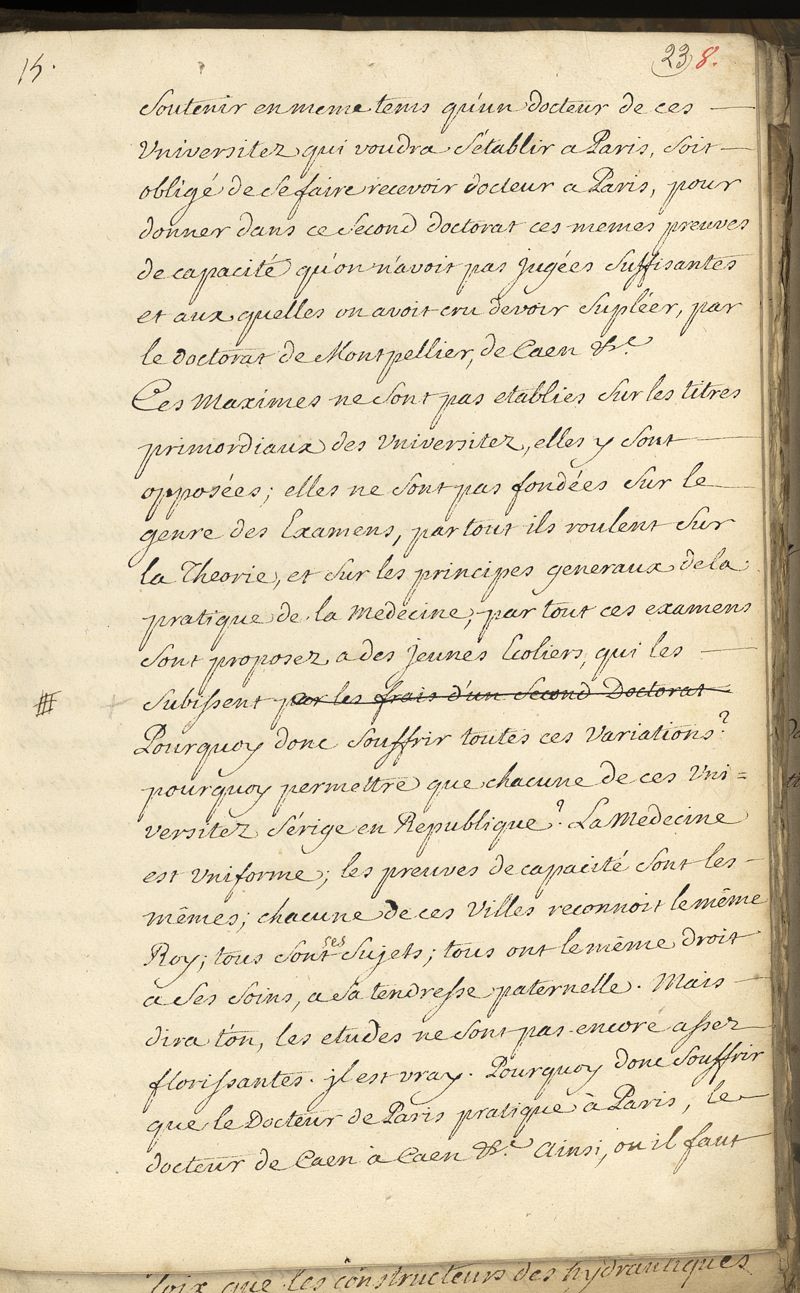 15.
23 8.
Soutenir en meme tems qu'un docteur de ces
Universitez qui voudra s'établir a Paris, soit
obligé de se faire recevoir docteur a Paris, pour
donner dans ce second doctorat ces memes preuves
de capacité qu'on n'avoit pas jugées suffisantes
et aux quelles on avoit cru devoir supléer, par
le doctorat de Montpellier, de Caen &c.
Ces Maximes ne sont pas etablies sur les titres
primordiaux des Universitez, elles y sont
opposées; elles ne sont pas fondées sur le
genre des Examens, partout ils roulent sur
la Theorie, et sur les principes generaux de la
pratique de la Medecine; par tout ces examens
sont proposez a des jeunes Ecoliers, qui les
# + subissent par les frais d'un second Doctorat
Pourquoy donc souffrir toutes ces variations?
pourquoy permettre que chacune de ces Uni=
versitez s'érige en Republique? La Medecine
est uniforme; les preuves de capacité sont les
mêmes; chacune de ces Villes reconnoit le même
Roy; tous sont ses sujets; tous ont le même droit
a ses soins, a sa tendresse paternelle. Mais
dira t'on, les etudes ne sont pas encore assez
florissantes. jl est vray. Pourquoy donc souffrir
que le Docteur de Paris pratique à Paris, le
docteur de Caen à Caen &c. Ainsi, ou il faut
loix que les constructeurs des hydrauliques